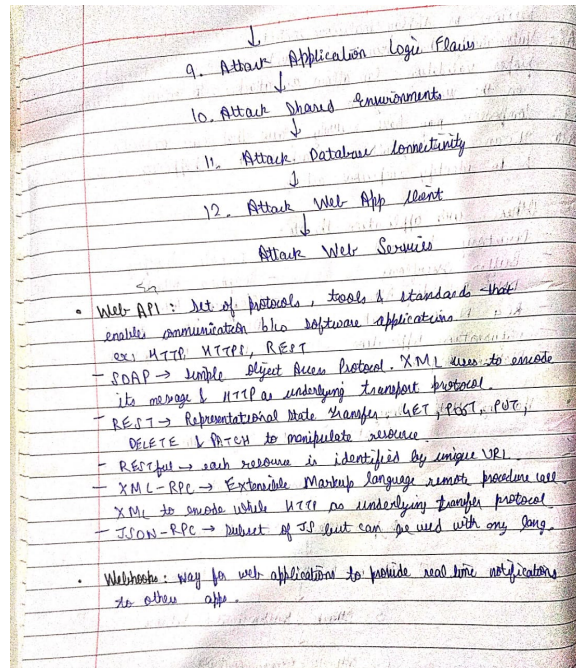 ↓
9. Attack Application Logic Flaws
↓
10. Attack Shared Environments
↓
11. Attack Database Connectivity
↓
12. Attack Web App Client
↓
Attack Web Services
• Web API : Set of protocols, tools & standards that
enable communication b/w software applications
ex: HTTP, HTTPS, REST
- SOAP → Simple Object Access Protocol. XML uses to encode
its message & HTTP as underlying transport protocol.
- REST → Representational State Transfer. GET, POST, PUT,
DELETE & PATCH to manipulate resource.
- RESTful → each resource is identified by unique URL.
- XML-RPC → Extensible Markup language remote procedure call.
XML to encode while HTTP as underlying transfer protocol
- JSON-RPC → subset of JS but can be used with any lang.
• Webhooks : way for web applications to provide real time notifications
to others apps.